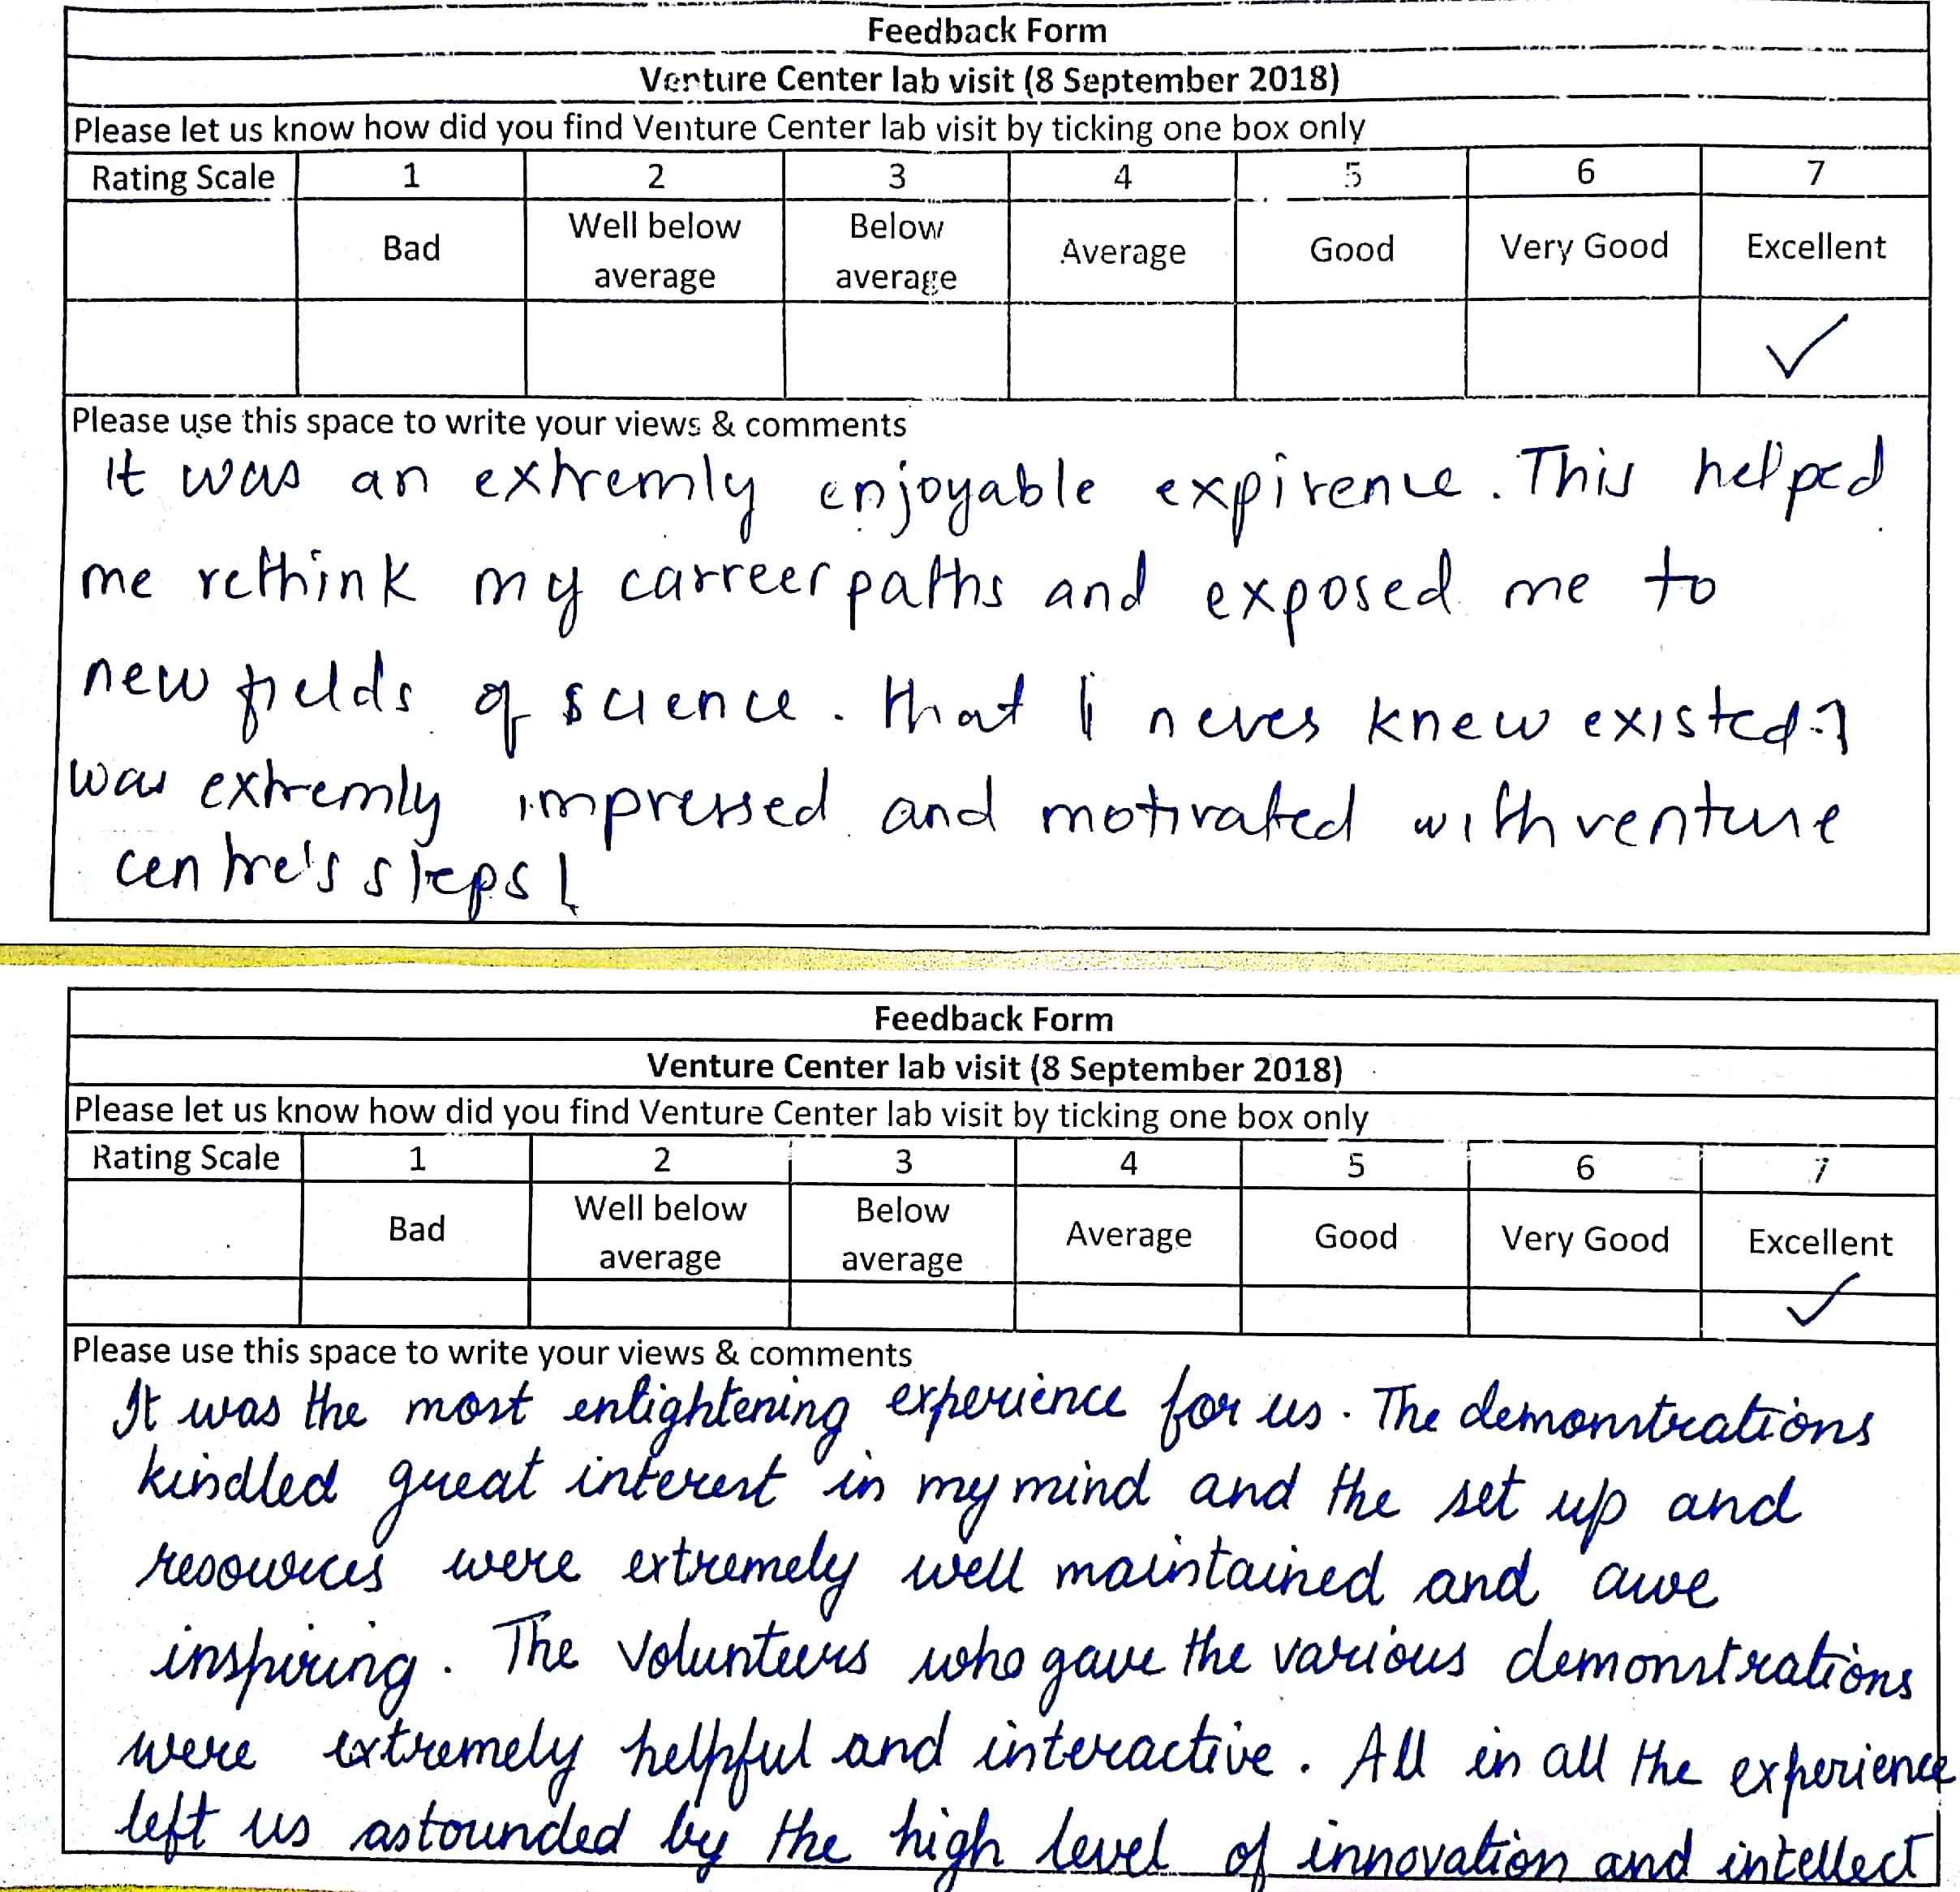 Feedback Form
Venture Center lab visit (8 September 2018)
Please let us know how did you find Venture Center lab visit by ticking one box only
Rating Scale 1 2 3 4 5 6 7
Bad Well below average Below average Average Good Very Good Excellent
✓
Please use this space to write your views & comments
It was an extremly enjoyable expirence. This helped
me rethink my carreer paths and exposed me to
new fields of science. that I never knew existed. I
was extremly impressed and motivated with venture
centre's steps!
Feedback Form
Venture Center lab visit (8 September 2018)
Please let us know how did you find Venture Center lab visit by ticking one box only
Rating Scale 1 2 3 4 5 6 7
Bad Well below average Below average Average Good Very Good Excellent
✓
Please use this space to write your views & comments
It was the most enlightening experience for us. The demonstrations
kindled great interest in my mind and the set up and
resources were extremely well maintained and awe
inspiring. The volunteers who gave the various demonstrations
were extremely helpful and interactive. All in all the experience
left us astounded by the high level of innovation and intellect